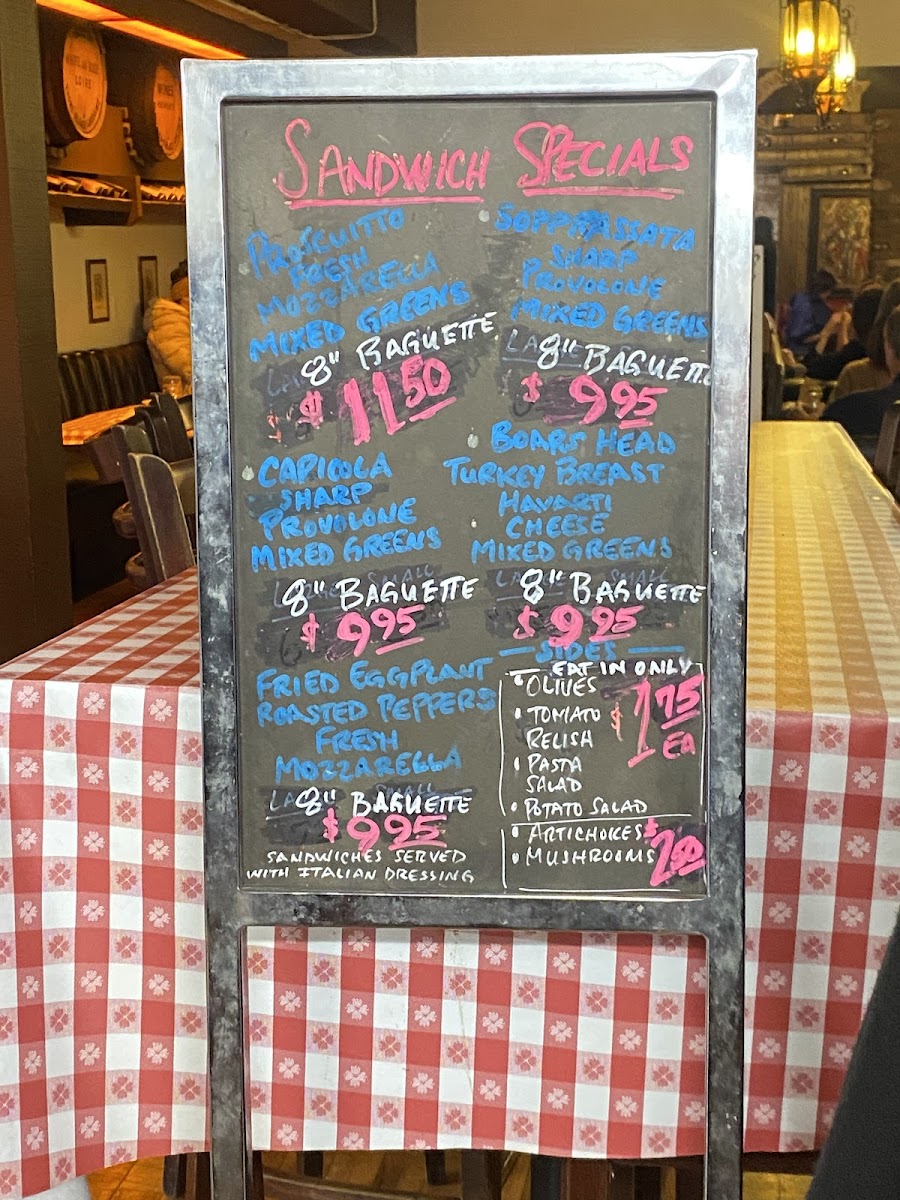 SANDWICH SPECIALS
PROSCUITTO
FRESH
MOZZARELLA
MIXED GREENS
8" BAGUETTE
$ 11.50
SOPPRASSATA
SHARP
PROVOLONE
MIXED GREENS
8" BAGUETTE
$ 9.95
CAPICOLA
SHARP
PROVOLONE
MIXED GREENS
8" BAGUETTE
$ 9.95
BOARS HEAD
TURKEY BREAST
HAVARTI
CHEESE
MIXED GREENS
8" BAGUETTE
$ 9.95
FRIED EGGPLANT
ROASTED PEPPERS
FRESH
MOZZARELLA
8" BAGUETTE
$ 9.95
SANDWICHES SERVED
WITH ITALIAN DRESSING
— SIDES —
EAT IN ONLY
• OLIVES
• TOMATO
RELISH
• PASTA
SALAD
• POTATO SALAD
$ 1.75
EA
• ARTICHOKES
• MUSHROOMS
$ 2.50